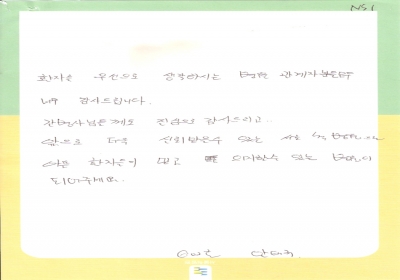 NS1
환자를 우선으로 생각하시는 병원 관계자분들께
너무 감사드립니다.
간호사님들께도 진심으로 감사드리고..
앞으로 더욱 신뢰받을수 있는
다른 환자분이 믿고 의지할수 있는 병원이
되어주세요..